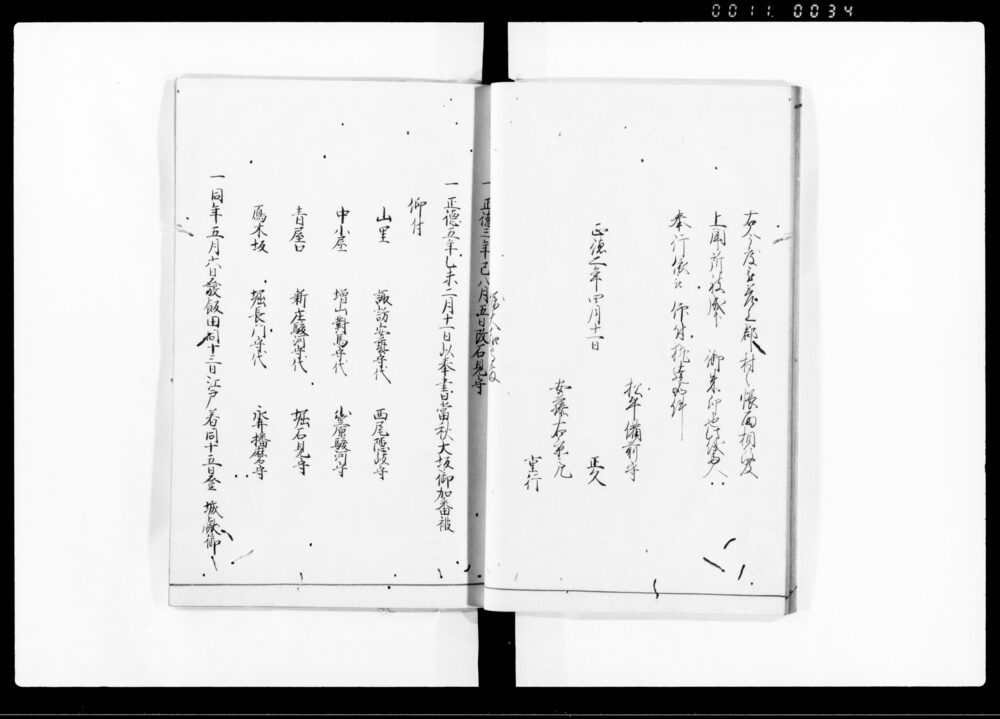 0011 0034
右今度被差上郡村之帳面相改及
上聞所被成下 御朱印也此儀両人
奉行依被 仰付執達如件
正徳二年四月十一日
松平備前守
正久
安藤右京亮
重行
一 正徳三年巳八月五日改石見守
一 正徳五年乙未二月十一日以奉書當秋大坂御加番被
仰付
山里 諏訪安藝守代 西尾隠岐守
中小屋 増山對馬守代 小笠原駿河守
青屋口 新庄駿河守代 堀石見守
鴈木坂 堀長門守代 永井播磨守
一 同年五月六日發飯田同十三日江戸着同十五日登 城獻御